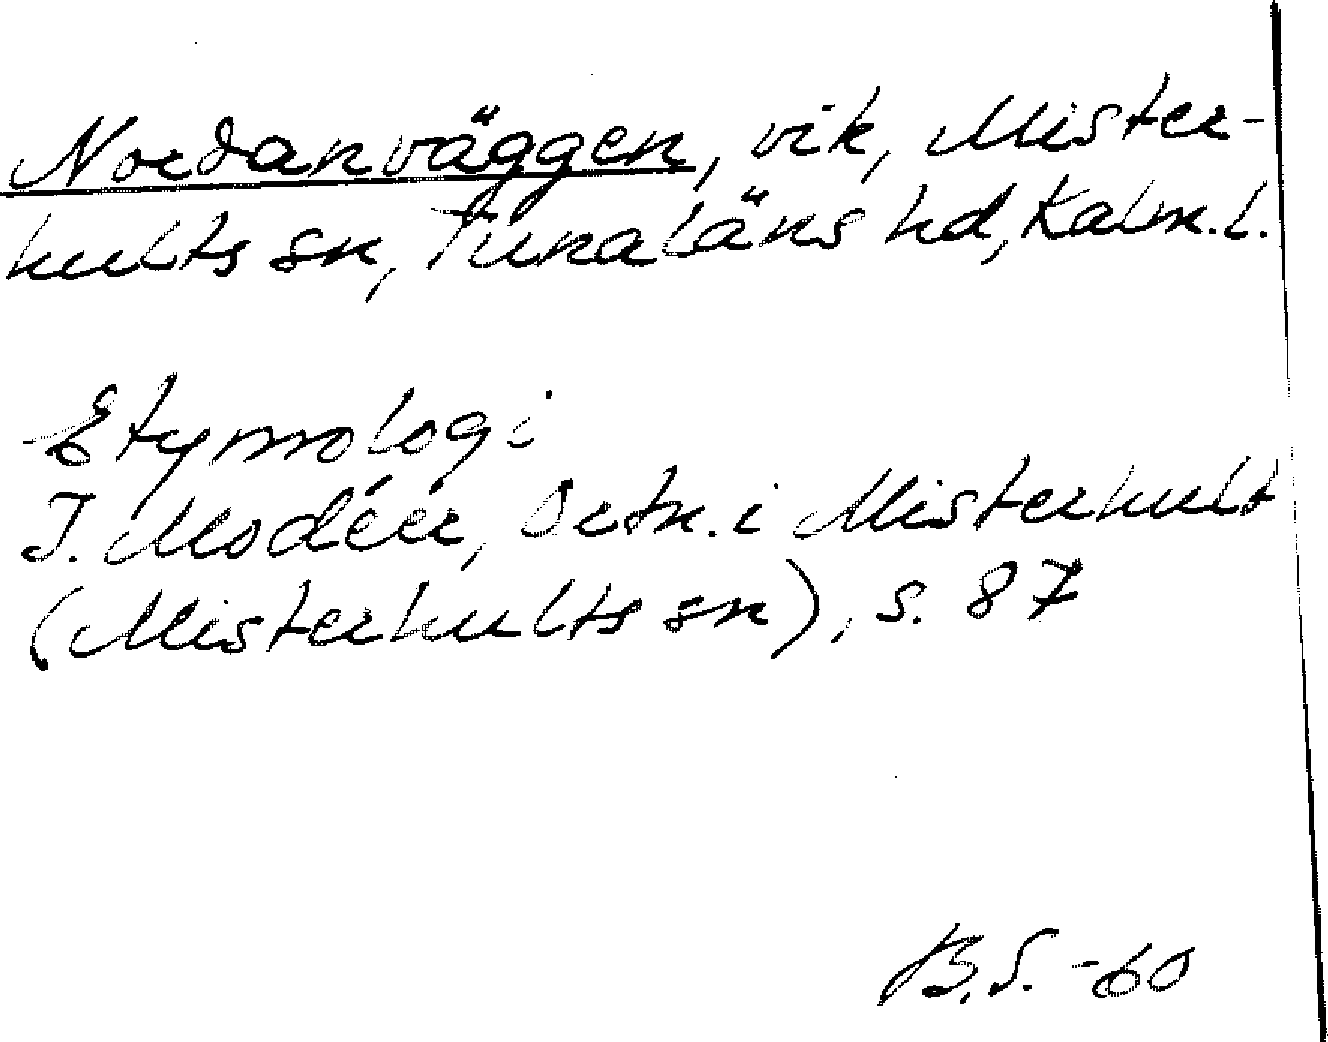 Nordanväggen, vik, Mister-
hults sn, Tunaläns hd, Kalm.l.
Etymologi
I. Modéer, Ortn. i Misterhult
(Misterhults sn), s. 87
B.S. -60